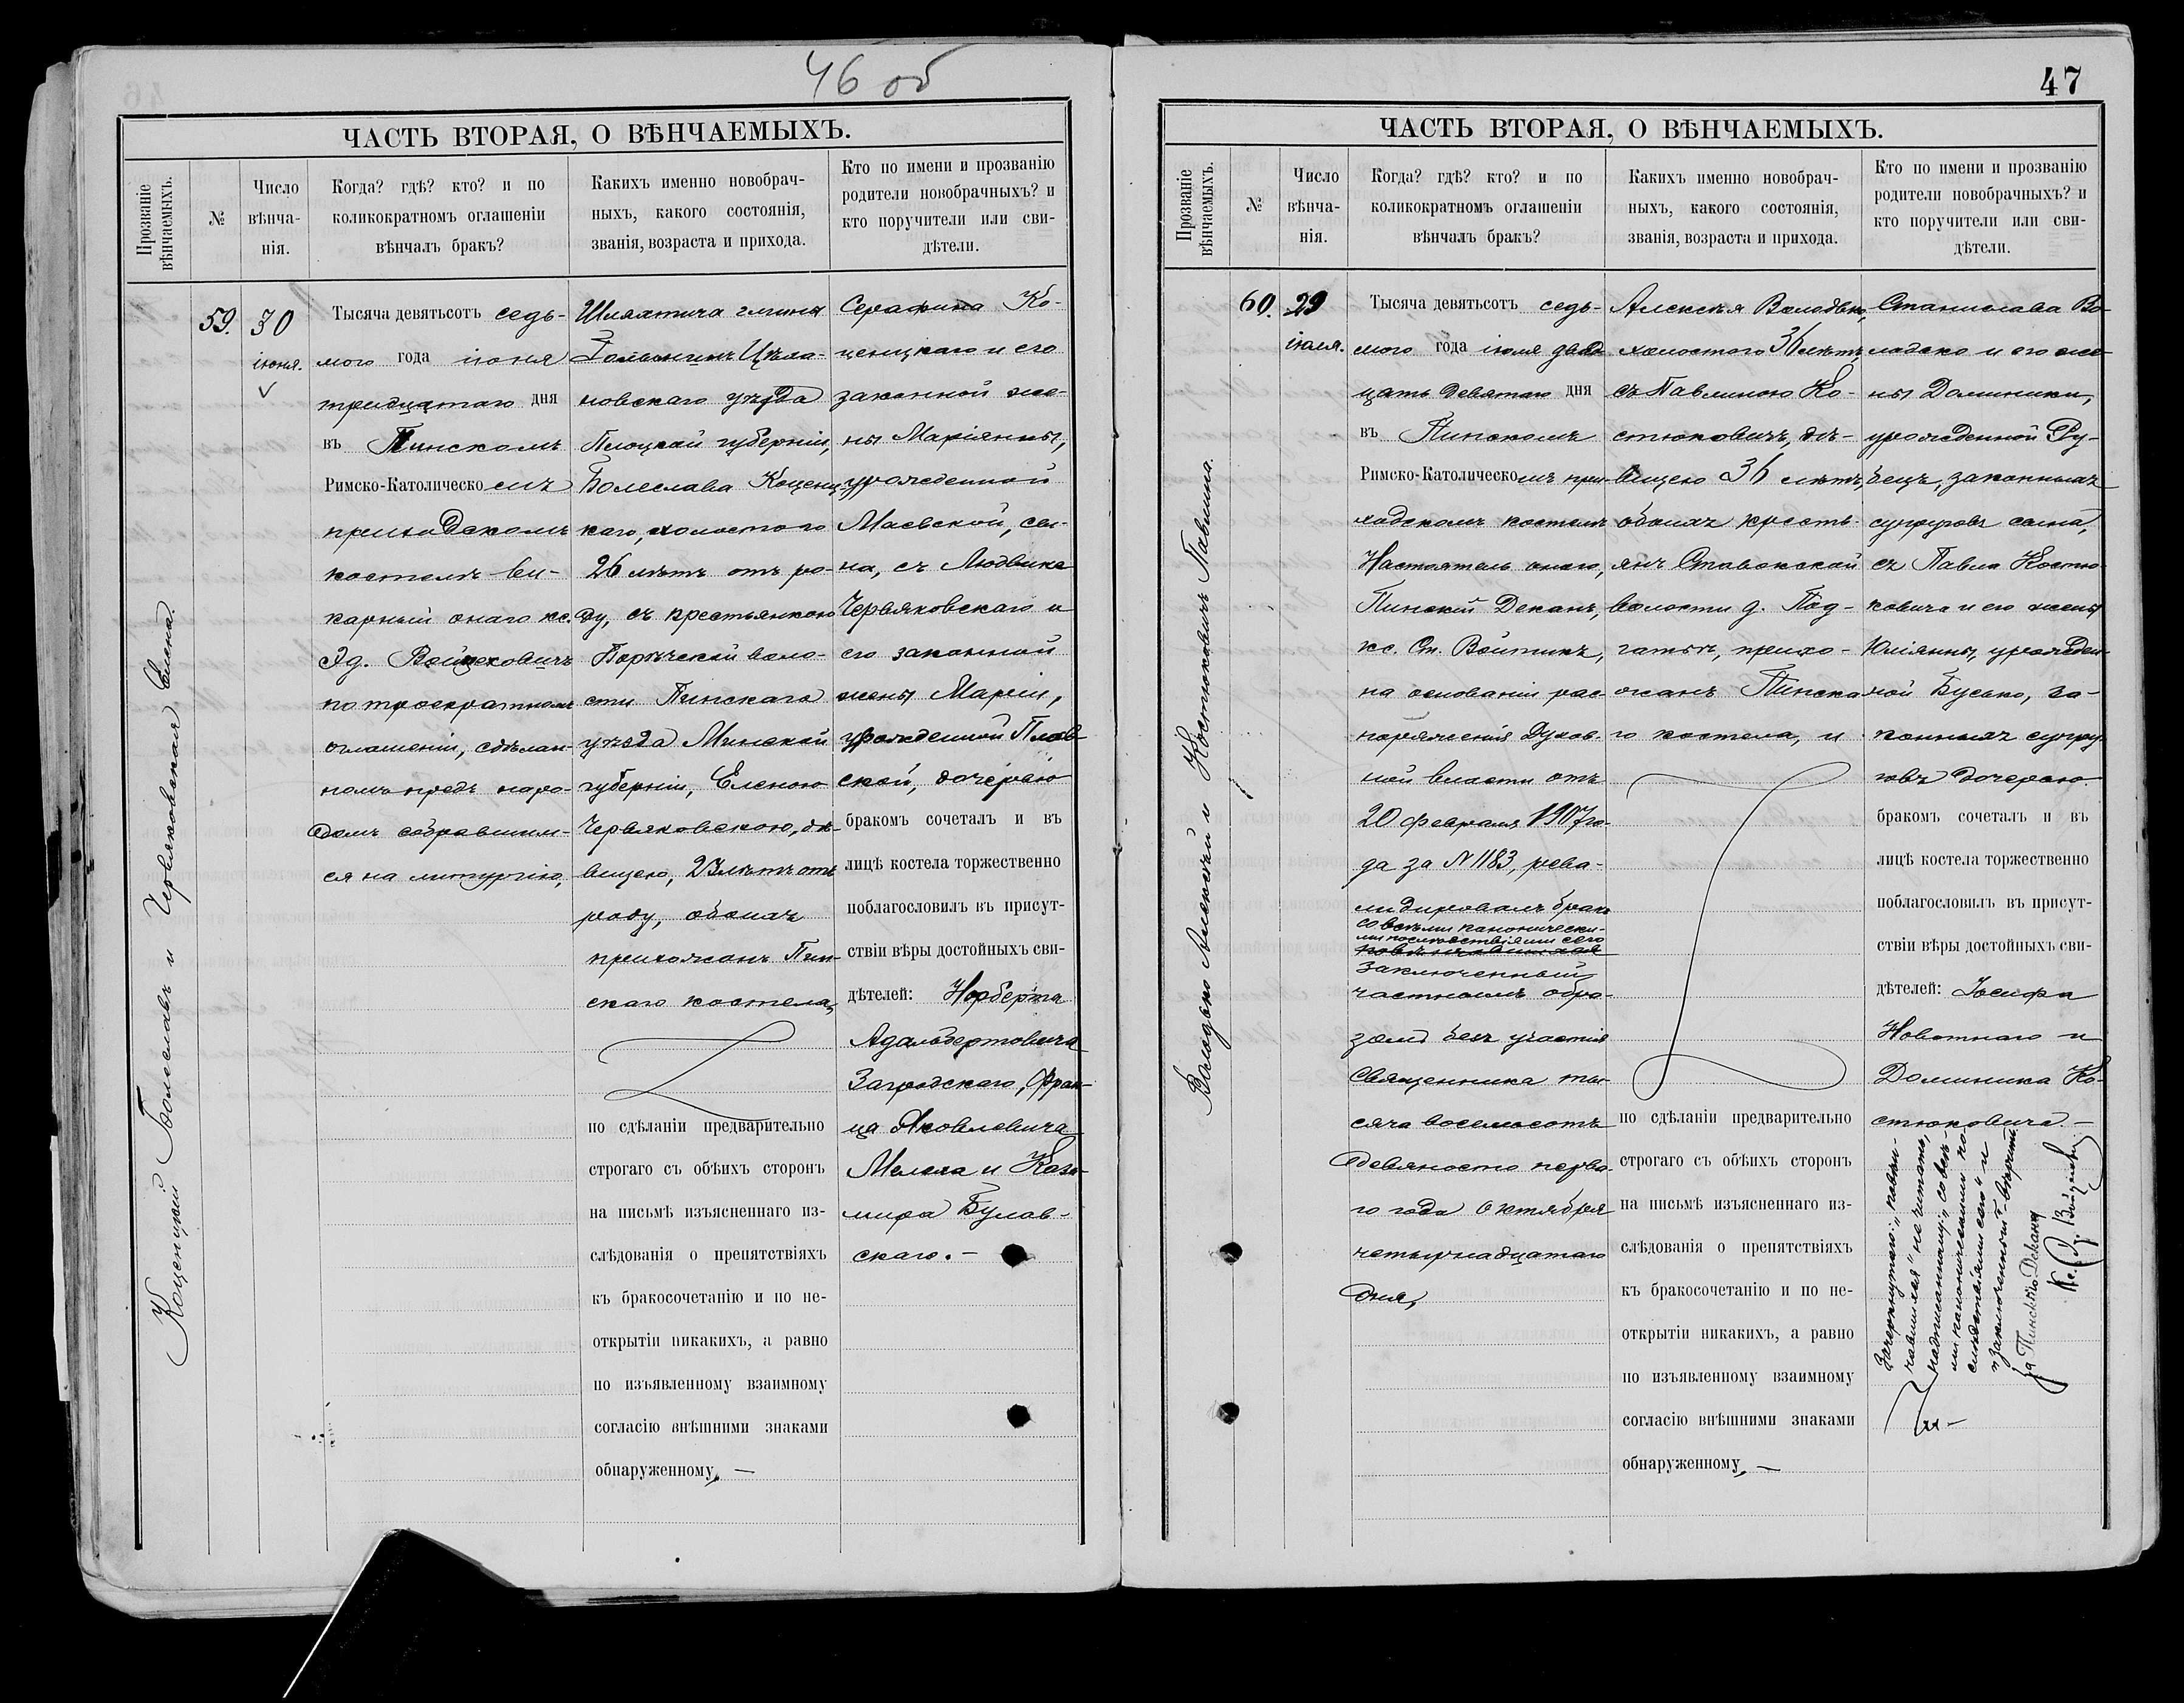 46 об
ЧАСТЬ ВТОРАЯ, О ВѢНЧАЕМЫХЪ.
Прозваніе
вѣнчаемыхъ.
№
Число
вѣнча-
нія.
Когда? гдѣ? кто? и по
коликократномъ оглашеніи
вѣнчалъ бракъ?
Какихъ именно новобрач-
ныхъ, какого состоянія,
званія, возраста и прихода.
Кто по имени и прозванію
родители новобрачныхъ? и
кто поручители или сви-
дѣтели.
Коценцкій Болеславъ и Червяковская Елена.
59.
30
іюня.
Тысяча девятьсотъ седь-
мого года іюня
тридцатаго дня
въ Пинскомъ
Римско-Католическомъ
приходскомъ
костелѣ ви-
карный онаго кс.
Эд. Войцеховичъ
по троекратномъ
оглашеніи, сдѣлан-
номъ предъ наро-
домъ собравшим-
ся на литургію,
Шляхтича гмины
Голынинъ Цѣха-
новскаго уѣзда
Плоцкой губерніи,
Болеслава Коценц-
каго, холостого
26 лѣтъ отъ ро-
ду, съ крестьянкою
Порѣчской воло-
сти Пинскаго
уѣзда Минской
губерніи, Еленою
Червяковскою, дѣ-
вицею, 23 лѣтъ отъ
роду, обоихъ
прихожанъ Пин-
скаго костела,
по сдѣланіи предварительно
строгаго съ обѣихъ сторонъ
на письмѣ изъясненнаго из-
слѣдованія о препятствіяхъ
къ бракосочетанію и по не-
открытіи никакихъ, а равно
по изъявленному взаимному
согласію внѣшними знаками
обнаруженному, —
Серафина Ко-
ценцкаго и его
законной же-
ны Маріянны,
урожденной
Маевской, сы-
на, съ Людвика
Червяковскаго и
его законной
жены Маріи,
урожденной Плав-
ской, дочерью
бракомъ сочеталъ и въ
лицѣ костела торжественно
поблагословилъ въ присут-
ствіи вѣры достойныхъ сви-
дѣтелей: Норберта
Адальбертовича
Загродскаго, Фран-
ца Яковлевича
Мелеха и Кази-
мира Булав-
скаго. —
47
ЧАСТЬ ВТОРАЯ, О ВѢНЧАЕМЫХЪ.
Прозваніе
вѣнчаемыхъ.
№
Число
вѣнча-
нія.
Когда? гдѣ? кто? и по
коликократномъ оглашеніи
вѣнчалъ бракъ?
Какихъ именно новобрач-
ныхъ, какого состоянія,
званія, возраста и прихода.
Кто по имени и прозванію
родители новобрачныхъ? и
кто поручители или сви-
дѣтели.
Володько Алексѣй и Костюковичъ Павлина.
60.
29
іюля.
Тысяча девятьсотъ седь-
мого года іюля двад-
цать девятаго дня
въ Пинскомъ
Римско-Католическомъ при-
ходскомъ костелѣ
Настоятель онаго,
Пинскій Деканъ,
кс. Ст. Войтикъ,
на основаніи рас-
поряженія Духов-
ной власти отъ
20 февраля 1907 го-
да за N 1183, рева-
лидировалъ бракъ
со всѣми канонически-
ми послѣдствіями сего
заключенный
частнымъ обра-
зомъ безъ участія
Священника ты-
сяча восемьсотъ
девяносто перва-
го года октября
четырнадцатаго
дня,
Алексѣя Володько,
холостого 36 лѣтъ,
съ Павлиною Ко-
стюковичъ, дѣ-
вицею 36 лѣтъ,
обоихъ кресть-
янъ Ставокской
волости д. Под-
гатье, прихо-
жанъ Пинска-
го костела, и
по сдѣланіи предварительно
строгаго съ обѣихъ сторонъ
на письмѣ изъясненнаго из-
слѣдованія о препятствіяхъ
къ бракосочетанію и по не-
открытіи никакихъ, а равно
по изъявленному взаимному
согласію внѣшними знаками
обнаруженному, —
Станислава Во-
лодько и его же-
ны Доминики,
урожденной Ру-
бецъ, законныхъ
супруговъ сына,
съ Павла Костю-
ковича и его жены
Юліянны, урожден-
ной Бусько, за-
конныхъ супру-
говъ дочерью.
бракомъ сочеталъ и въ
лицѣ костела торжественно
поблагословилъ въ присут-
ствіи вѣры достойныхъ сви-
дѣтелей: Іосифа
Новотнаго и
Доминика Ко-
стюковича. —
Зачеркнутаго: „повѣн-
чавшихся" не читать,
надписанному: „со всѣ-
ми каноническими по-
слѣдствіями сего" и
„заключенный" - вѣрить.
За Пинскаго Декана
Кс. Эд. Войцеховичъ